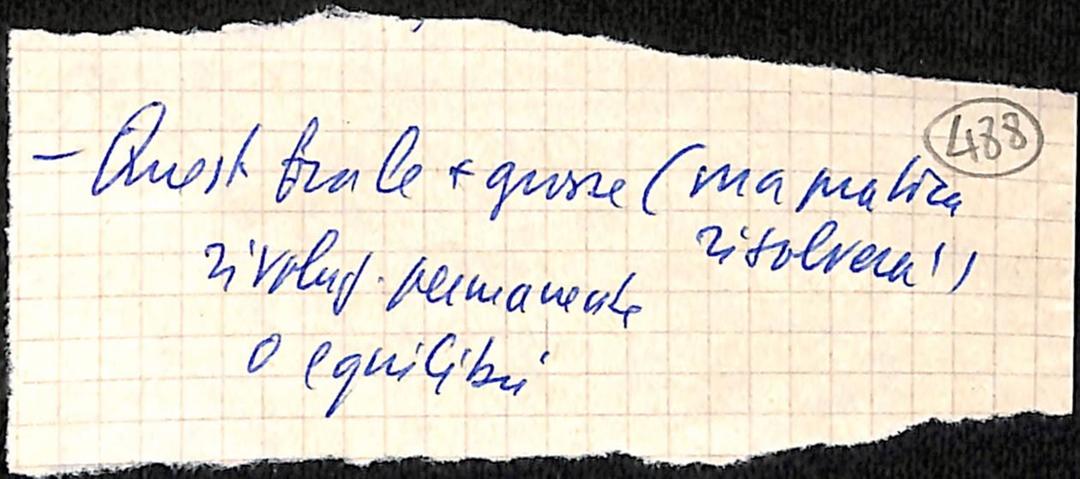 488
- Quest finale + grosse (ma pratica
risolverà!)
rivoluz. permanente
o equilibri